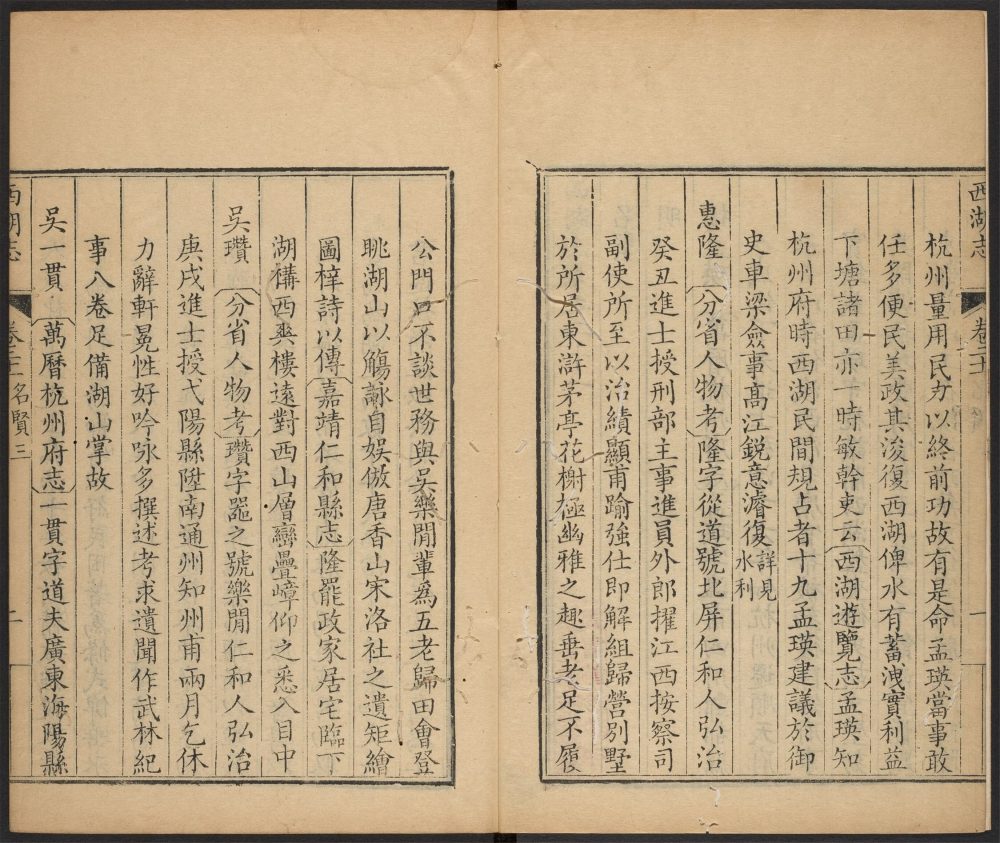 西湖志 卷二十 一
杭州量用民力以終前功故有是命孟瑛當事敢
任多便民美政其浚復西湖俾水有蓄洩實利益
下塘諸田亦一時敏幹吏云西湖遊覽志孟瑛知
杭州府時西湖民間規占者十九孟瑛建議於御
史車梁僉事高江銳意濬復詳見水利
惠隆 分省人物考隆字從道號北屏仁和人弘治
癸丑進士授刑部主事進員外郎擢江西按察司
副使所至以治績顯甫踰強仕即解組歸營別墅
於所居東滸茅亭花榭極幽雅之趣垂老足不履
公門口不談世務與吳樂閒輩為五老歸田會登
眺湖山以觴詠自娛倣唐香山宋洛社之遺矩繪
圖梓詩以傳嘉靖仁和縣志隆罷政家居宅臨下
湖構西爽樓遠對西山層巒疊嶂仰之悉入目中
吳瓚 分省人物考瓚字器之號樂閒仁和人弘治
庚戌進士授弋陽縣陞南通州知州甫兩月乞休
力辭軒冕性好吟咏多撰述考求遺聞作武林紀
事八卷足備湖山掌故
吳一貫 萬曆杭州府志一貫字道夫廣東海陽縣
西湖志 名賢三